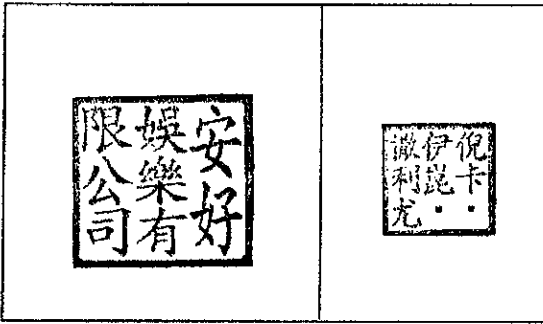 安好
娛樂有
限公司
倪卡▪
伊崑▪
撒利尤